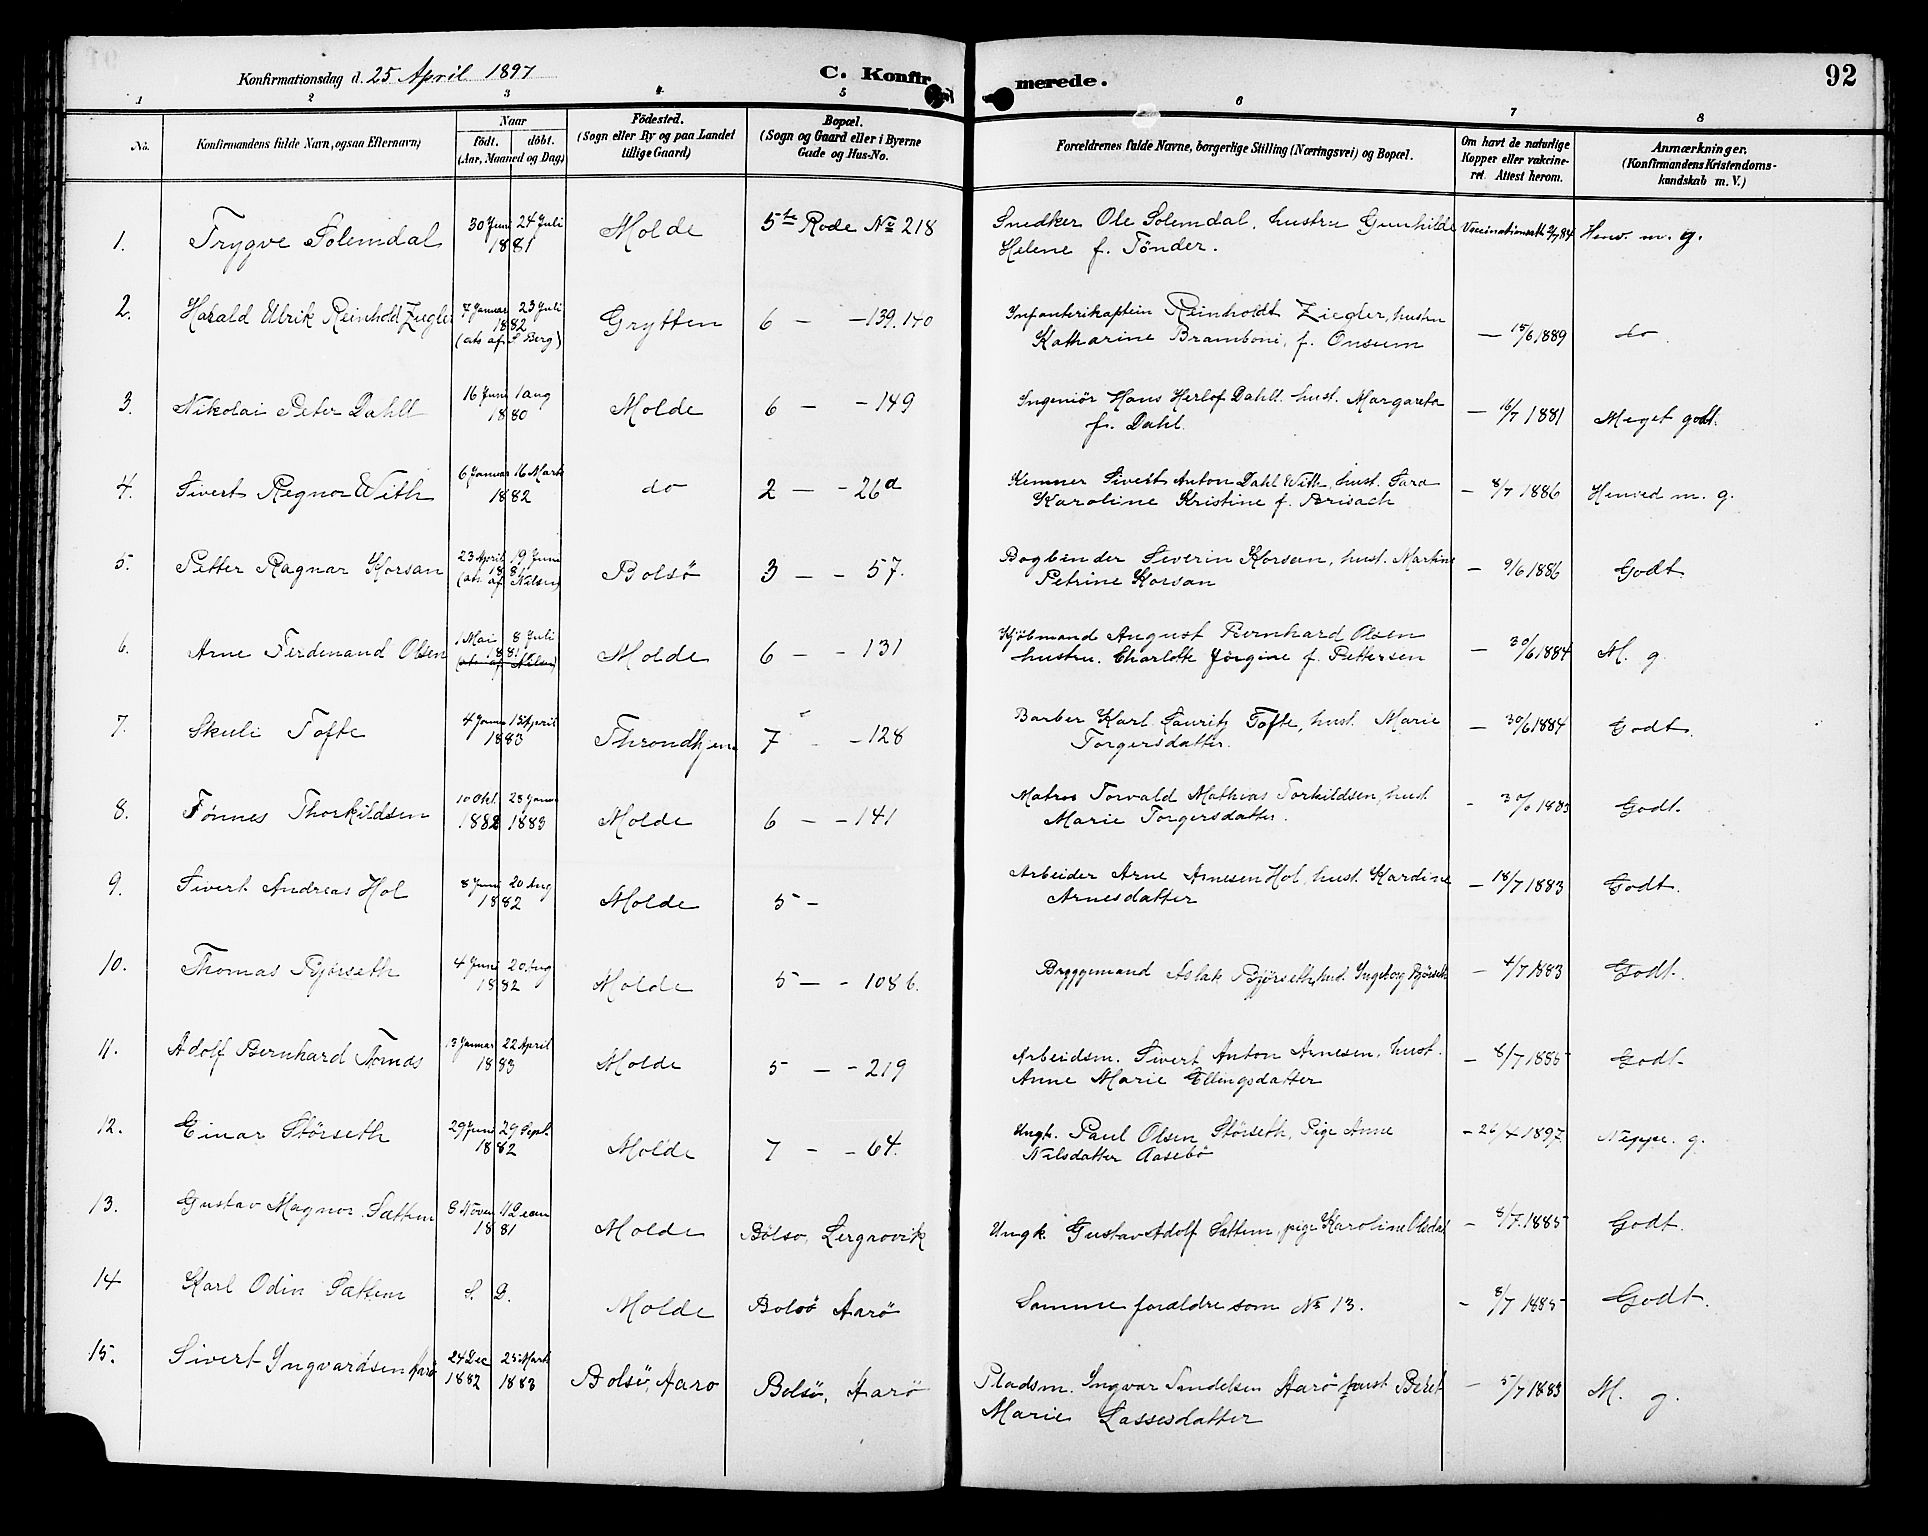 Konfirmationsdag d. 25 April 1897
C. Konfir merede.
92
1 2 3 4 5 6 7 8
No.
Konfirmandens fulde Navn, ogsaa Efternavn)
Naar
født. døbt.
(Aar, Maaned og Dag)
Födested.
(Sogn eller By og paa Landet
tillige Gaard)
Bopæl.
(Sogn og Gaard eller i Byerne
Gade og Hus-No.
Forældrenes fulde Navne, borgerlige Stilling (Næringsvei) og Bopæl.
Om havt de naturlige
Kopper eller vakcine-
ret. Attest herom.
Anmærkninger.
(Konfirmandens Kristendoms-
kundskab m. V.)
1. Trygve Solemdal 30 Juni 24 Juli 1881 Molde 5te Rode No 218 Snedker Ole Solemdal, hustru Gunhilde
Helene f. Tönder. m. g.
2. Harald Ulrik Reinhold Ziegler 7 Januar 23 Juli 1882 (ats af S Berg) Grytten 6 — — 139.140 Infanterikaptein Reinholdt Ziegler, hustru
Katharine Bramboni, f. Onsum — 15/6 1889 do
3. Nikolai Peter Dahll 16 Juni 1 aug 1880 Molde 6 — - 149 Ingeniör Hans Herlof Dahll. hust. Margareta
f. Dahl. — 16/7 1881 Meget godt.
4. Sivert Regnor With 6 Januar 16 Marts 1882 do 2 — - 26a Kemner Sivert Anton Dahl With, hust. Sara
Karoline Kristine f. Brisach — 8/7 1886 m. g.
5. Petter Ragnar Korsan 23 April 19 Juni 188 (ats. af Nilsen) Bolsö 3 — - 57. Bogbinder Severin Korsan, hust. Martine
Petrine Korsan — 9/6 1886 Godt.
6. Arne Ferdinand Olsen 1 Mai 8 Juli 1881 Molde 6 — - 131 Kjöbmand August Bernhard Olsen
hustru. Charlotte Jörgine f. Pettersen — 30/6 1884 M. g.
7. Skuli Tofte 4 Janua 15 April 1883 Throndhjem 7 - - 128 Barber Karl Lauritz Tofte, hust. Marie
Torgersdatter. — 30/6 1884 Godt.
8. Tönnes Thorkildsen 10 Okt. 1882 1883 Molde 6 — - 141 Matros Torvald Mathias Torkildsen, hust
Marie Torgersdatter. 1883 Godt.
9. Sivert Andreas Hol 8 Juni 20 Aug 1882 Molde 5 — Arbeider Arne Arnesen Hol, hust. Kardine
Arnesdatter — 18/7 1883 Godt.
10. Thomas Björseth 4 Juni 20 Aug 1882 Molde 5 — - 108 b. Bryggemand Aslak Björseth, hust. Ingeborg Björseth — 4/7 1883 Godt.
11. Adolf Bernhard 3 Januar 22 April 1883 Molde 5 — - 219 Arbeidsm. Sivert Anton Arnesen, hust.
Anne Marie Ellingsdatter — 8/7 1885 Godt
12. Einar Störseth 29 Juni 29 Sept. 1882 Molde 7 - - 64. Ungk. Paul Olsen Störseth, Pige Anne
Nilsdatter Aasebö — 26/4 1897 Neppe. g.
13. Gustav Magnor Sættem 8 Noven 1881 Molde Bölsö, Lergrovik Ungk. Gustav Adolf Sættem, pige Karoline — 8/7 1885 Godt.
14 Karl Odin Sættem S. D. Molde Bolsö Aarö Samme forældre som No 13. - 8/7 1885 Godt.
15. Sivert Ingvardsen Aarö 24 Dec 1882 25 Marts 1883 Bolsö, Aarö Bolsö, Aarö Pladsm. Ingvar Sandelsen Aarö hust Beret
Marie Lassesdatter — 5/7 1883 M. g.